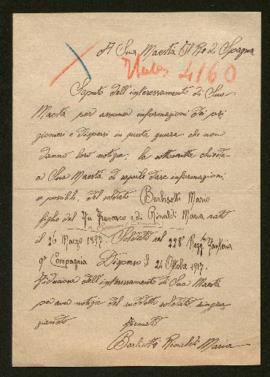 A Sua Maestà Il Re di Spagna
4160
Saputo dell'interessamento di Sua
Maestà per assumere informazioni dei pri
gionieri e dispersi in questa guerra che non
danno loro notizie, la sottoscritta chiede a
Sua Maestà di sapere dare informazioni
se possibile, del soldato Mario
figlio del fu Francesco e di Rinaldi Maria nato
il 26 Marzo 1897. Soldato nel 228° Regg. Fanteria
9ª Compagnia Disperso il 26 Ottobre 1917.
dell'interessamento di Sua Maestà
per aver notizie del suddetto soldato
Maria